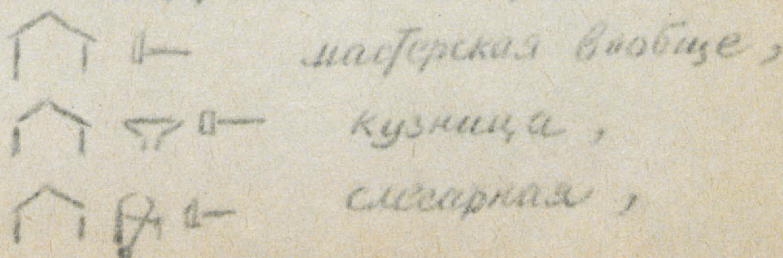 мастерская вообще,
кузница,
слесарная,